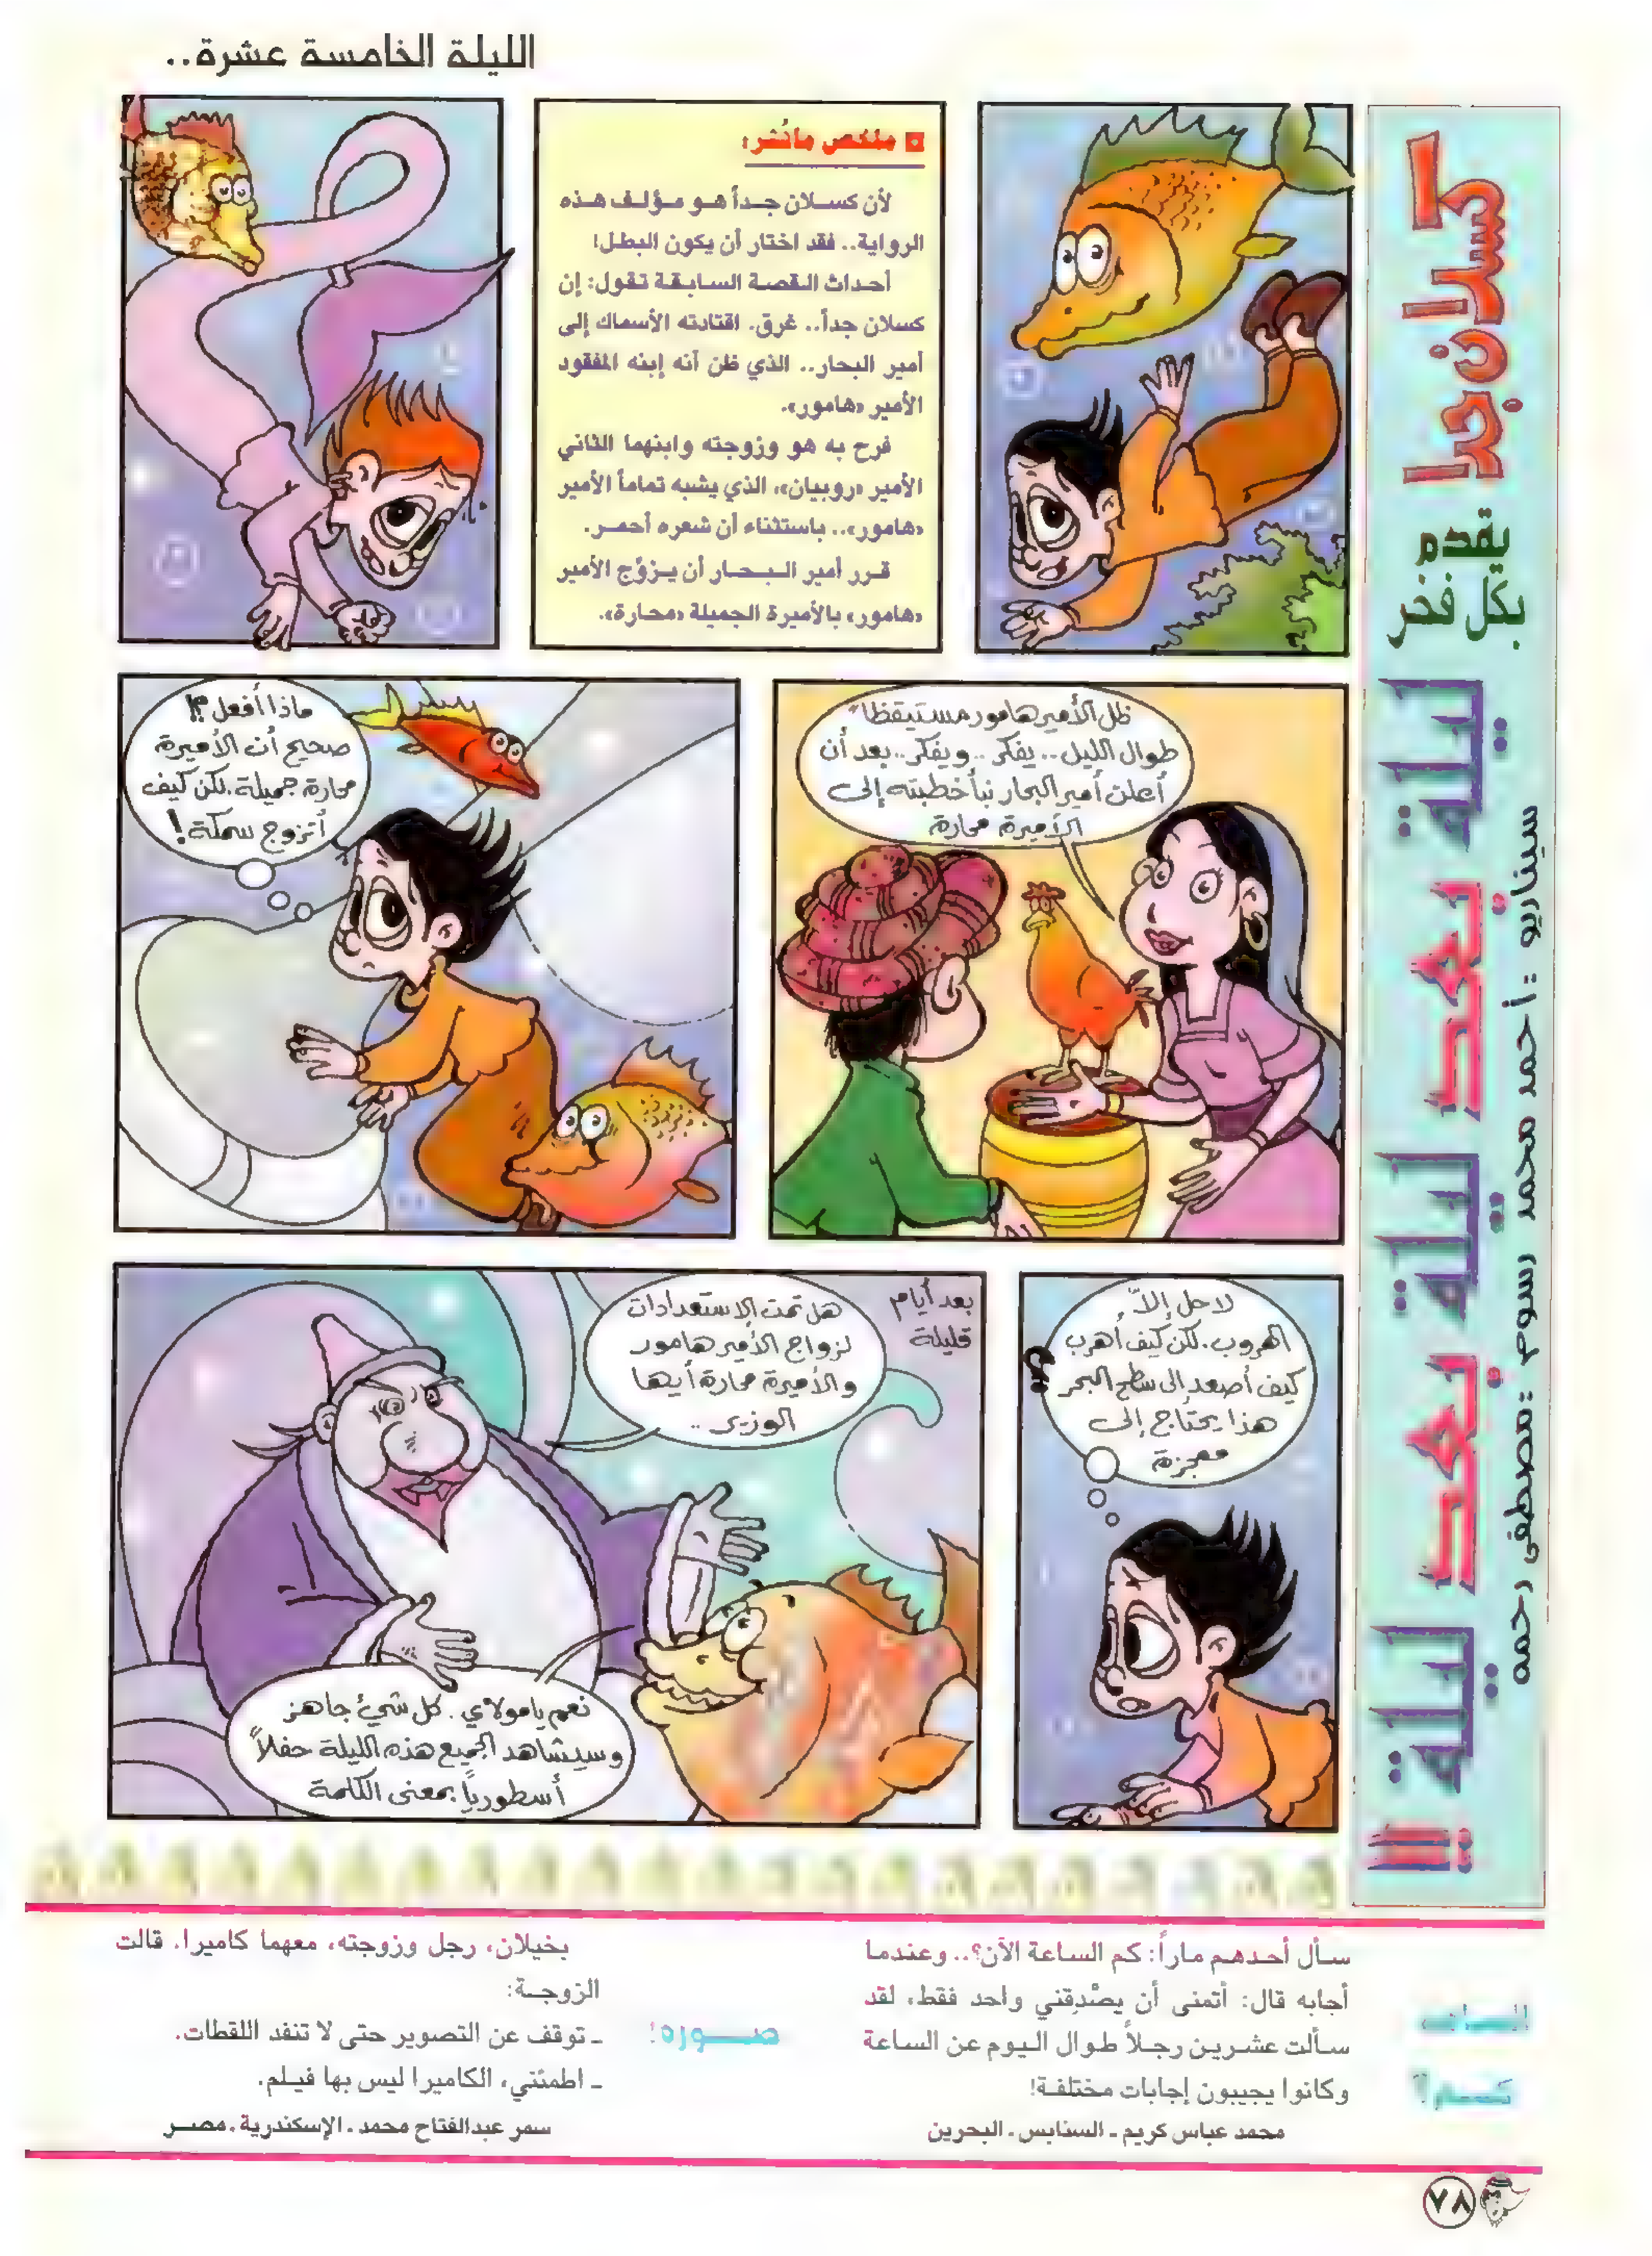 الليلة الخامسة عشرة..
كسلان جدا
يقدم
بكل فخر
ليلة بعد ليلة بعد ليلة !!
سيناريو : أحمد محمد رسوم : مصطفى رحمه
ملخص ما نُشر:
لأن كسلان جداً هو مؤلف هذه
الرواية.. فقد اختار أن يكون البطل!
أحداث القصة السابقة تقول: إن
كسلان جداً.. غرق. اقتادته الأسماك إلى
أمير البحار.. الذي ظن أنه إبنه المفقود
الأمير «هامور».
فرح به هو وزوجته وابنهما الثاني
الأمير «روبيان»، الذي يشبه تماماً الأمير
«هامور».. باستثناء أن شعره أحمر.
قرر أمير البحار أن يزوّج الأمير
«هامور» بالأميرة الجميلة «محارة».
ظل الأمير هامور مستيقظاً
طوال الليل.. يفكر.. ويفكر.. بعد أن
أعلن أمير البحار نبأ خطبته إلى
الأميرة محارة
ماذا أفعل؟!
صحيح أن الأميرة
محارة جميلة. لكن كيف
أتزوج سمكة!
لا حل إلاّ
الهروب. لكن كيف أهرب
كيف أصعد إلى سطح البحر
هذا يحتاج إلى
معجزة
بعد أيام
قليلة
هل تمت الإستعدادات
لزواج الأمير هامور
والأميرة محارة أيها
الوزير..
نعم يا مولاي. كل شيء جاهز
وسيشاهد الجميع هذه الليلة حفلاً
أسطورياً بمعنى الكلمة
الساعة
كم؟
سأل أحدهم ماراً: كم الساعة الآن؟.. وعندما
أجابه قال: أتمنى أن يصْدِقني واحد فقط، لقد
سألت عشرين رجلاً طوال اليوم عن الساعة
وكانوا يجيبون إجابات مختلفة!
محمد عباس كريم - السنابس - البحرين
صورة!
بخيلان، رجل وزوجته، معهما كاميرا. قالت
الزوجة:
- توقف عن التصوير حتى لا تنفد اللقطات.
- اطمئني، الكاميرا ليس بها فيلم.
سمر عبدالفتاح محمد - الإسكندرية - مصر
٧٨